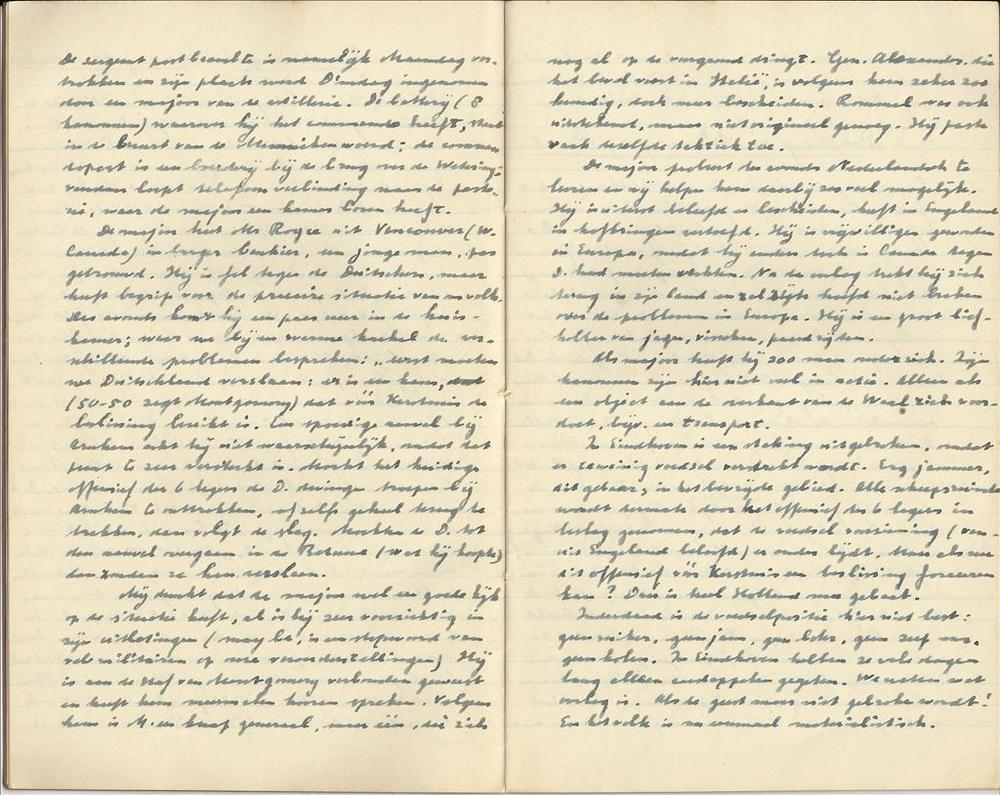 De sergeant postbeambte is namelijk Maandag ver-
trokken en zijn plaats werd Dinsdag ingenomen
door een majoor van de artillerie. De batterij (8
kanonnen) waarover hij het commando heeft, staat
in de buurt van de Munnikenwoerd; de comman
dopost is een boerderij bij de brug over de Wetering;
vandaar loopt telefoonverbinding naar de pasto-
rie, waar de majoor een kamer boven heeft.
De majoor heet Mr Royce uit Vancouver (W.
Canada) in burger bankier, een jonge man, pas
getrouwd. Hij is fel tegen de Duitschers, maar
heeft begrip voor de precaire situatie van ons volk.
Des avonds komt hij een paar uur in de huis-
kamer; waar we bij een warme kachel de ver-
schillende problemen bespreken: eerst moeten
we Duitschland verslaan; er is een kans,
(50-50 zegt Montgomery) dat vóór Kerstmis de
beslissing bereikt is. Een spoedige aanval bij
Arnhem acht hij niet waarschijnlijk, omdat dat
punt te zeer versterkt is. Mocht het huidige
offensief der 6 legers de D. dwingen troepen bij
Arnhem te onttrekken, of zelfs geheel terug te
trekken, dan volgt de slag. Mochten de D. tot
den aanval overgaan in de Betuwe (wat hij hoopte)
dan zouden ze hen verslaan.
Mij dunkt dat de majoor wel een goede kijk
op de situatie heeft, al is hij zeer voorzichtig in
zijn uitlatingen (may be, is een stopwoord van
vele militairen op onze veronderstellingen) Hij
is aan de staf van Montgomery verbonden geweest
en heeft hem meermalen hooren spreken. Volgens
hem is M. een knap generaal, maar één, die zich
nog al op de voorgrond dringt. Gen. Alexander, die
het bevel voert in Italië, is volgens hem zeker zoo
kundig, doch meer bescheiden. Rommel was ook
uitstekend, maar niet origineel genoeg. Hij paste
vaak dezelfde taktiek toe.
De majoor probeert des avonds Nederlandsch te
leeren en wij helpen hem daarbij zooveel mogelijk.
Hij is uiterst beleefd en bescheiden, heeft in Engeland
in hofkringen vertoefd. Hij is vrijwilliger geworden
in Europa, omdat hij anders toch in Canada tegen
D. had moeten vechten. Na de oorlog trekt hij zich
terug in zijn land en zal zijn hoofd niet breken
over de problemen in Europa. Hij is een groot lief-
hebber van jagen, visschen, paardrijden.
Als majoor heeft hij 300 man onder zich. Zijn
kanonnen zijn hier niet veel in actie. Alleen als
een object aan de overkant van de Waal zich voor-
doet, bijv. een transport.
In Eindhoven is een staking uitgebroken, omdat
er te weinig voedsel verstrekt wordt. Erg jammer,
dit gebaar, in het bevrijde gebied. Alle scheepsruimte
wordt dermate door het offensief des 6 legers in
beslag genomen, dat de voedselvoorziening (van-
uit Engeland beloofd) er onder lijdt. Maar als nu
dit offensief vóór Kerstmis een beslissing forceeren
kan? Dan is heel Holland mee gebaat.
Inderdaad is de voedselpositie hier niet best:
geen suiker, geen jam, geen boter, geen zeep enz.,
geen kolen. In Eindhoven hebben ze vele dagen
lang alleen aardappelen gegeten. We weten wat
oorlog is. Als de geest maar niet gebroken wordt!
En het volk is nu eenmaal materialistisch.